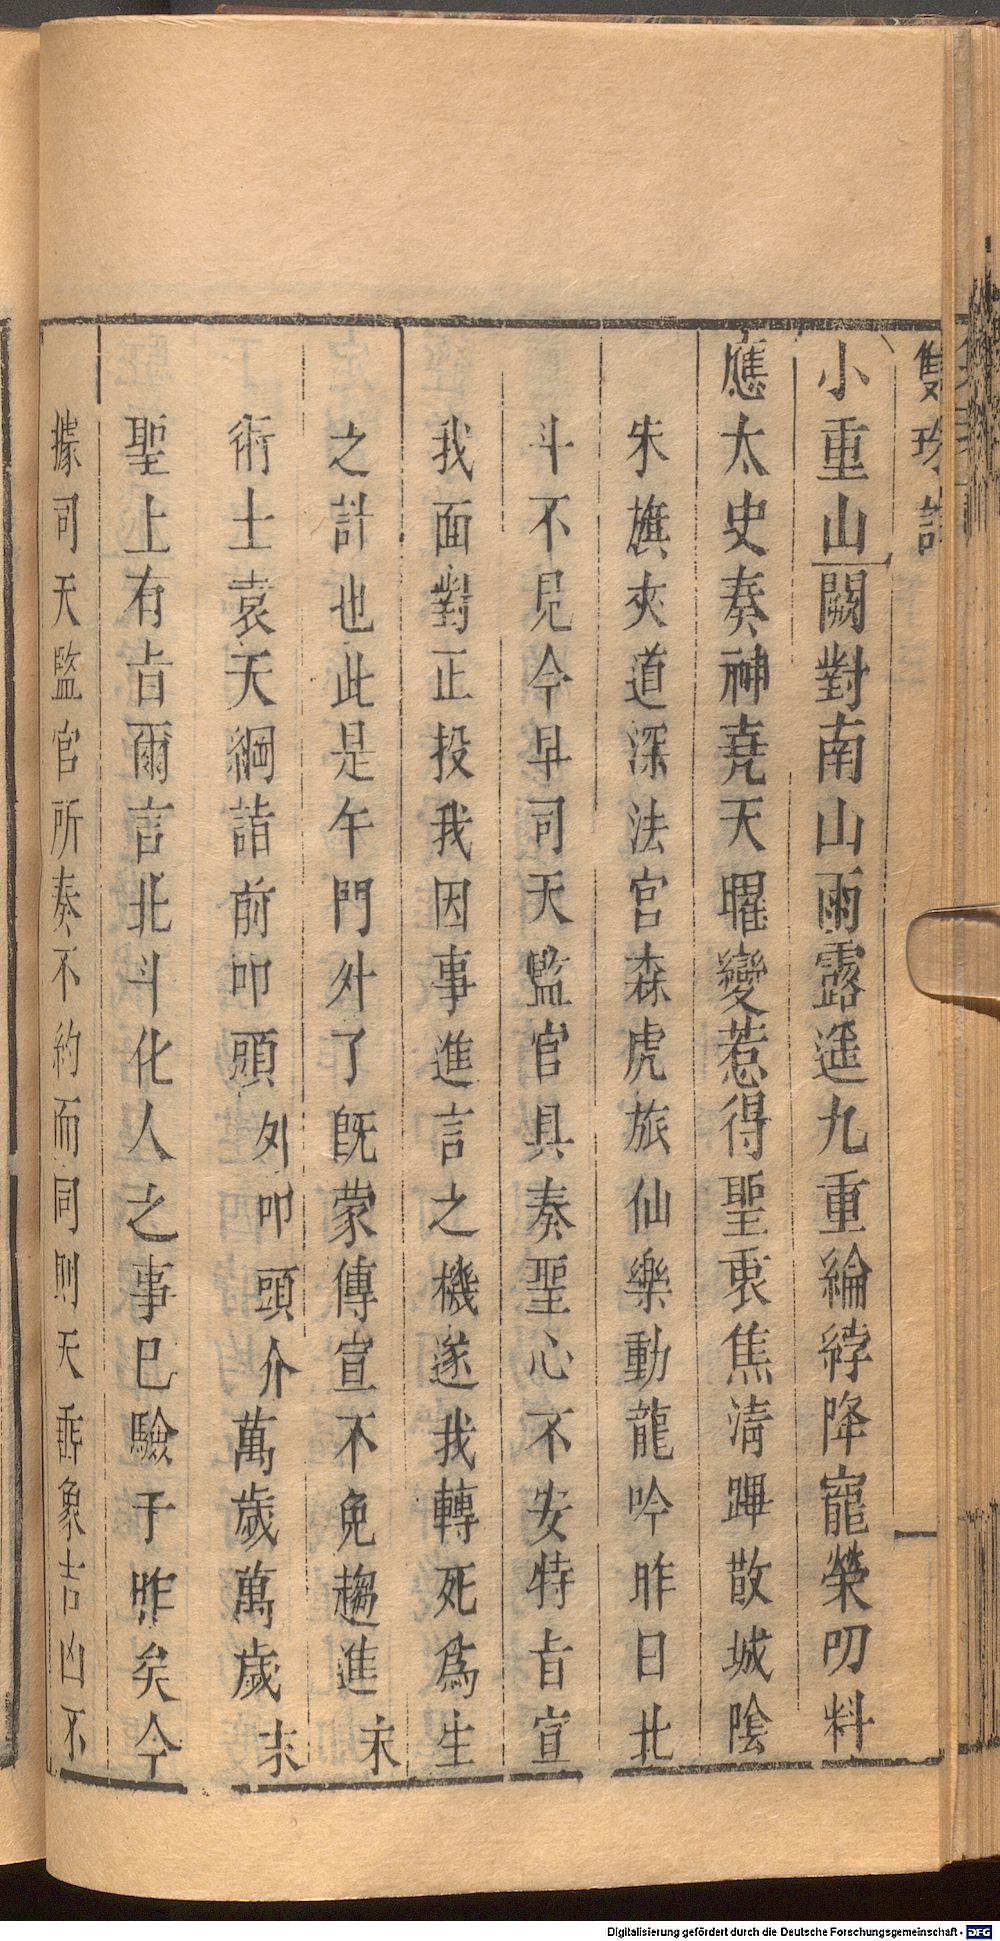 雙珠記
小重山闕對南山雨露遥九重綸綍降寵榮叨料
應太史奏神堯天曜變惹得聖衷焦淸蹕散城陰
朱旗夾道深法宮森虎旅仙樂動龍吟昨日北
斗不見今早司天監官具奏聖心不安特旨宣
我面對正投我因事進言之機遂我轉死爲生
之計也此是午門外了旣蒙傳宣不免趨進末
術士袁天綱詣前叩頭外叩頭介萬歲萬歲末
聖上有旨爾言北斗化人之事已驗于昨矣今
據司天監官所奏不約而同則天垂象吉凶不
Digitalisierung gefördert durch die Deutsche Forschungsgemeinschaft - DFG